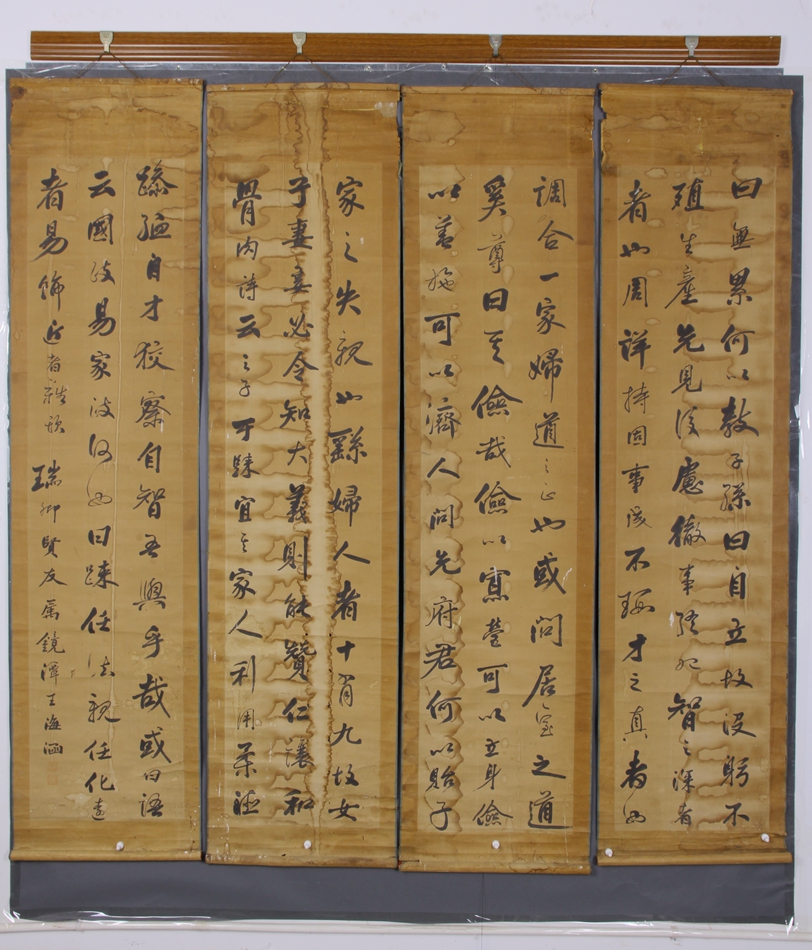 曰無累何以教子孫曰自立故没躬不
殖生產先見後慮徹事終始智之深者
者也周詳持固事成不瑕才之真者也
調合一家婦道之正也或問居室之道
奚尊曰其儉哉儉以寡營可以立身儉
以善施可以濟人問先府君何以貽子
家之失親也繇婦人者十有九故女
子妻妾必令知大義則能贊仁讓和
骨肉詩云之子于歸宜其家人利用柔德
自才狡察自智吾與乎哉或曰語
云國政易家政何如曰疎任法親任化遠
者易飾近者難欺 瑞卿賢友屬 鏡潭王海涵